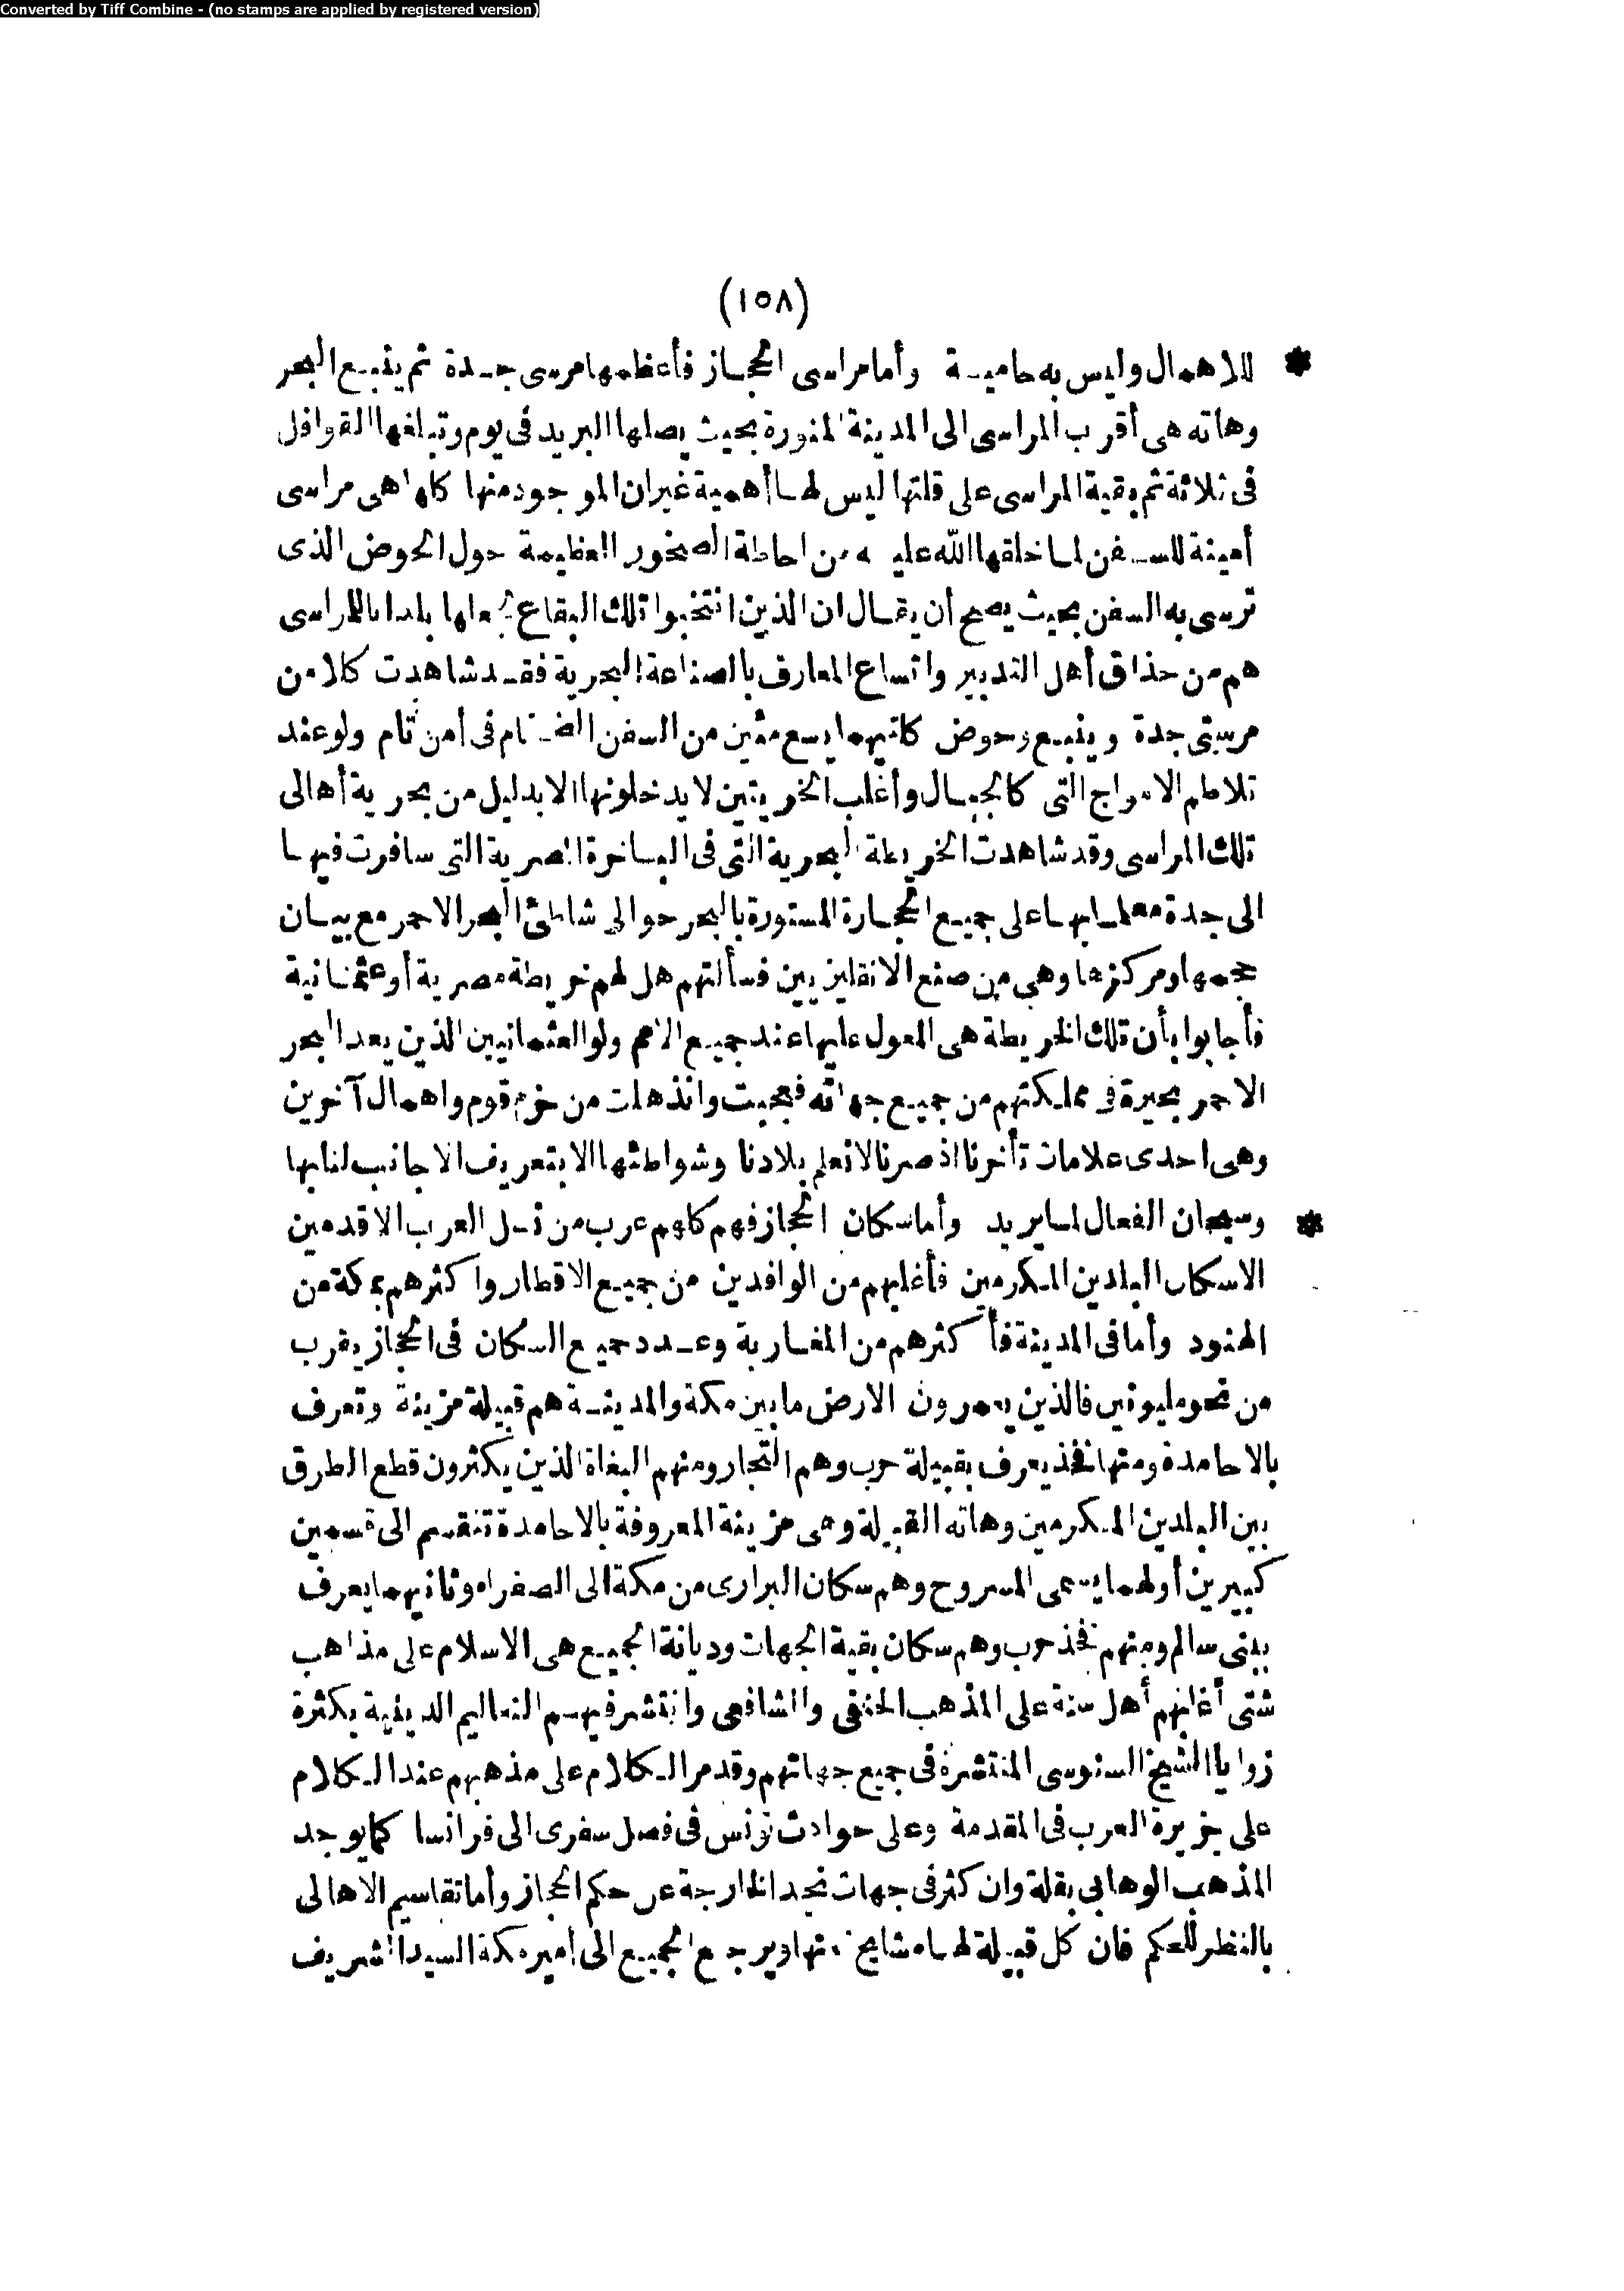 Converted by Tiff Combine - (no stamps are applied by registered version)
(١٥٨)
* للاهمال وليس به حامية وأما مراسى الحجاز فأعظمها مرسى جدة ثم ينبع البحر
وهاته هى أقرب المراسى الى المدينة المنورة بحيث يصلها البريد فى يوم وتبلغها القوافل
فى ثلاثة ثم بقية المراسى على قلتها ليس لها أهمية غير ان الموجود منها كلها هى مراسى
أمينة للسفن لما خلقها الله عليه من احاطة الصخور العظيمة حول الحوض الذى
ترسى به السفن بحيث يصح أن يقال ان الذين انتخبوا تلك البقاع بلدانا للمراسى
هم من حذاق أهل التدبير واتساع المعارف بالصناعة البحرية فقد شاهدت كلا من
مرسيتى جدة وينبع وحوض كلتيهما يسع مئين من السفن الضخام فى أمن تام ولو عند
تلاطم الامواج التى كالجبال وأغلب الخريتين لا يدخلونها الا بدليل من بحرية أهالى
تلك المراسى وقد شاهدت الخريطة البحرية التى فى الباخرة المصرية التى سافرت فيها
الى جدة معلما بها على جميع الحجارة المستورة بالبحر حوالى شاطئ البحر الاحمر مع بيان
حجمها ومركزها وهى من صنع الانقليزيين فسألتهم هل لهم خريطة مصرية أو عثمانية
فأجابوا بأن تلك الخريطة هى المعول عليها عند جميع الامم ولو العثمانيين الذين يعد البحر
الاحمر بحيرة فى مملكتهم من جميع جهاته فعجبت وانذهلت من حزم قوم واهمال آخرين
وهى احدى علامات تأخرنا اذ صرنا لا نعلم بلادنا وشواطئها الا بتعريف الاجانب لنا بها
* وسبحان الفعال لما يريد وأما سكان الحجاز فهم كلهم عرب من نسل العرب الاقدمين
الا سكان البلدين المكرمين فأغلبهم من الوافدين من جميع الاقطار وأكثرهم بمكة من
الهنود وأما فى المدينة فأكثرهم من المغاربة وعدد جميع السكان فى الحجاز يقرب
من نحو مليونين فالذين يعمرون الارض ما بين مكة والمدينة هم قبيلة مزينة وتعرف
بالاحامدة ومنها فخذ يعرف بقبيلة حرب وهم التجار ومنهم البغاة الذين يكثرون قطع الطرق
بين البلدين المكرمين وهاته القبيلة وهى مزينة المعروفة بالاحامدة تنقسم الى قسمين
كبيرين أولهما يسمى المسروح وهم سكان البرارى من مكة الى الصفراء وثانيهما يعرف
ببنى سالم ومنهم فخذ حرب وهم سكان بقية الجهات وديانة الجميع هى الاسلام على مذاهب
شتى أغلبهم أهل سنة على المذهب الحنفى والشافعى وانتشر فيهم التعاليم الدينية بكثرة
زوايا الشيخ السنوسى المنتشرة فى جميع جهاتهم وقد مر الكلام على مذهبهم عند الكلام
على جزيرة العرب فى المقدمة وعلى حوادث تونس فى فصل سفرى الى فرانسا كما يوجد
المذهب الوهابى بقلة وان كثر فى جهات نجد الخارجة عن حكم الحجاز وأما تقاسيم الاهالى
بالنظر للحكم فان كل قبيلة لها مشايخ منها ويرجع الجميع الى أمير مكة السيد الشريف